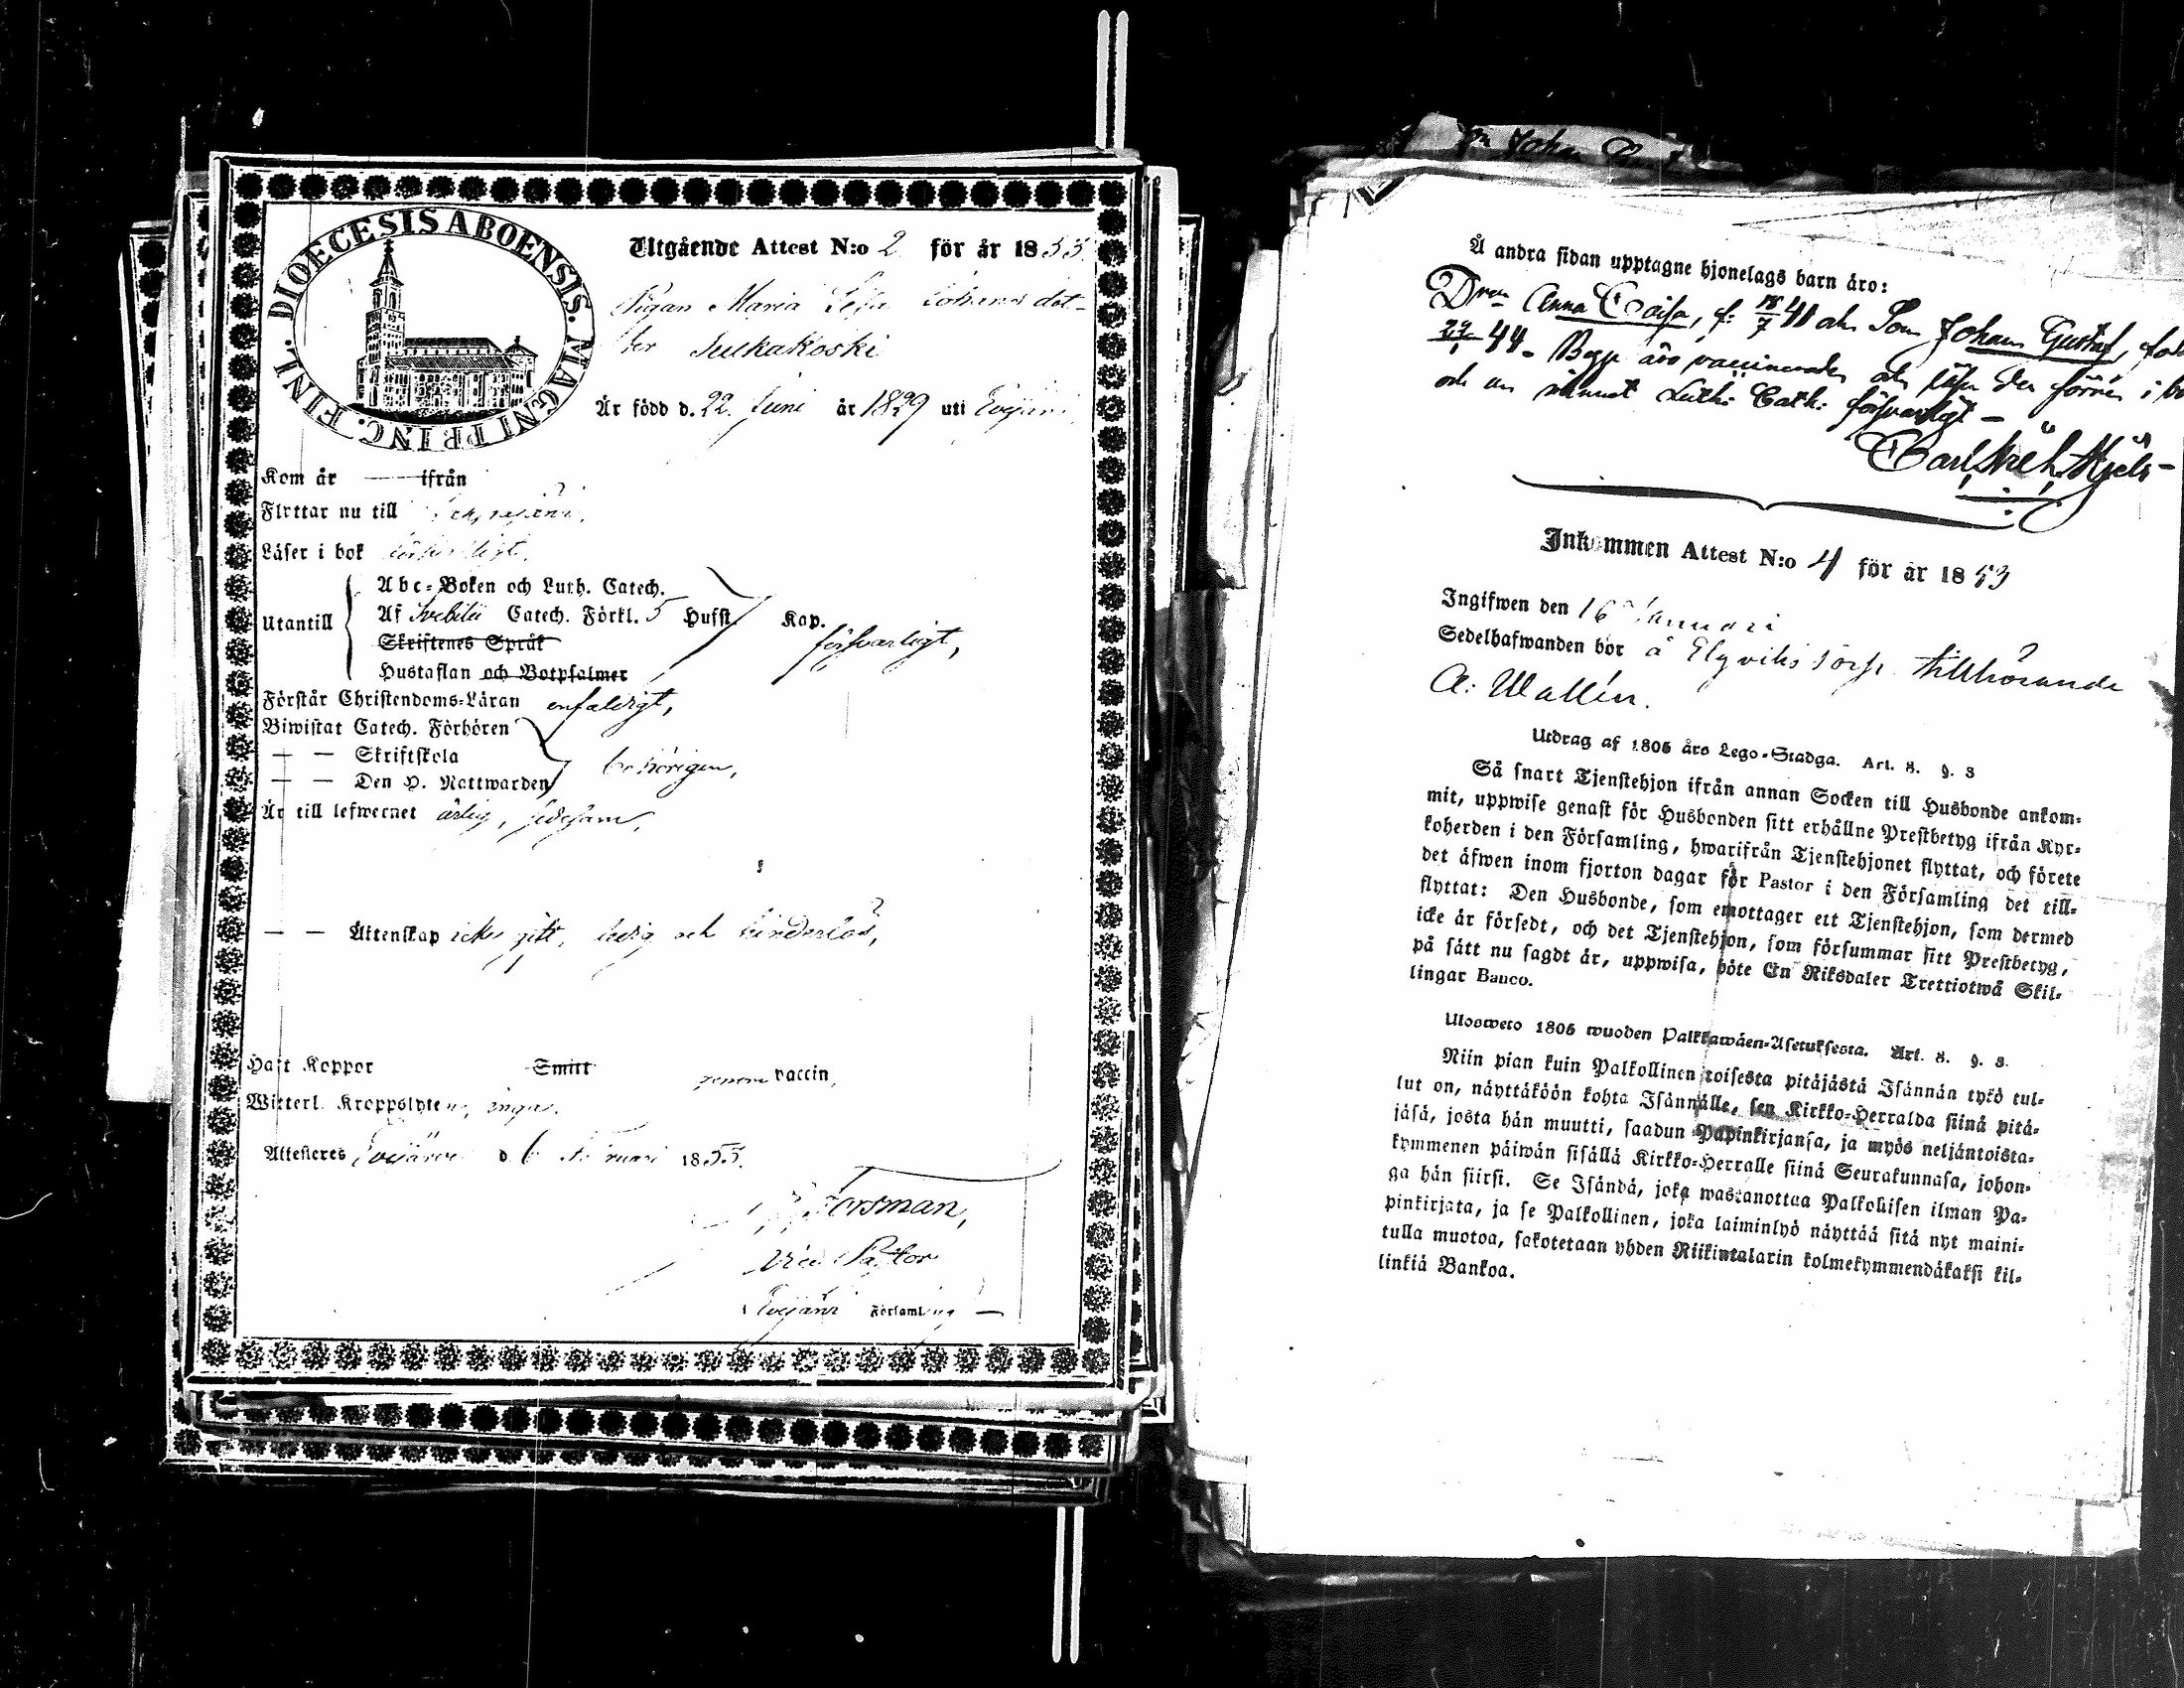 Johan
DIOECESIS ABOENSIS. MAGNI PRINC. FINL.
Utgående Attest N:o 2 för år 1853
Pigan Maria Lisa Johans dot-
ter Julkakoski
Är född d. 22 Juni år 1829 uti Evijärvi
Kom år — ifrån
Flyttar nu till
Läser i bok försvarligt.
Utantill
Abc-Boken och Luth. Catech.
Af Svebilii Catech. Förkl. 5 Hufst. Kap.
Skriftenes Språk
försvarligt,
Hustaflan och Botpsalmer
Förstår Christendoms-Läran enfaldigt,
Biwistat Catech. Förhören
— — Skriftskola
— — Den H. Nattwarden behörigen,
Är till lefwernet ärlig, sedesam,
— — Äktenskap icke gift, ledig och hinderlös,
Haft Koppor Smitt genom vaccin,
Witterl. Kroppslyten, inga.
Attesteres Evijärvi d. 6 Februari 1853.
Forsman,
Vice Pastor
i Evijärvi Församling —
Å andra sidan upptagne hjonelags barn äro:
Dren Anna Caisa, f. 18/7 41 och Son Johan Gustaf, född
44. Begge äro vaccinerade och läser den förre i bok
och utur minnet Luth: Cath: försvarligt —
Carl
Inkommen Attest N:o 4 för år 1853
Ingifwen den 16 Januari
Sedelhafwanden bor å Elgviks torp tillhörande
A: Wallin.
Utdrag af 1805 års Lego-Stadga. Art. 8. §. 3
Så snart Tjenstehjon ifrån annan Socken till Husbonde ankom-
mit, uppwise genast för Husbonden sitt erhållne Prestbetyg ifrån Kyr-
koherden i den Församling, hwarifrån Tjenstehjonet flyttat, och förete
det äfwen inom fjorton dagar för Pastor i den Församling det till-
flyttat: Den Husbonde, som emottager ett Tjenstehjon, som dermed
icke är försedt, och det Tjenstehjon, som försummar sitt Prestbetyg,
på sätt nu sagdt är, uppwisa, böte En Riksdaler Trettiotwå Skil-
lingar Banco.
Ulosweto 1805 wuoden Palkkawäen-Asetuksesta. Art. 8. §. 3.
Niin pian kuin Palkollinen toisesta pitäjästä Isännän tykö tul-
lut on, näyttäköön kohta Isännälle, sen Kirkko-Herralda siinä pitä-
jäsä, josta hän muutti, saadun Papinkirjansa, ja myös neljäntoista-
kymmenen päiwän sisällä Kirkko-Herralle siinä Seurakunnasa, johon-
ga hän siirsi. Se Isändä, joka wastanottaa Palkolisen ilman Pa-
pinkirjata, ja se Palkollinen, joka laiminlyö näyttää sitä nyt maini-
tulla muotoa, sakotetaan yhden Riikintalarin kolmekymmendäkaksi kil-
linkiä Bankoa.